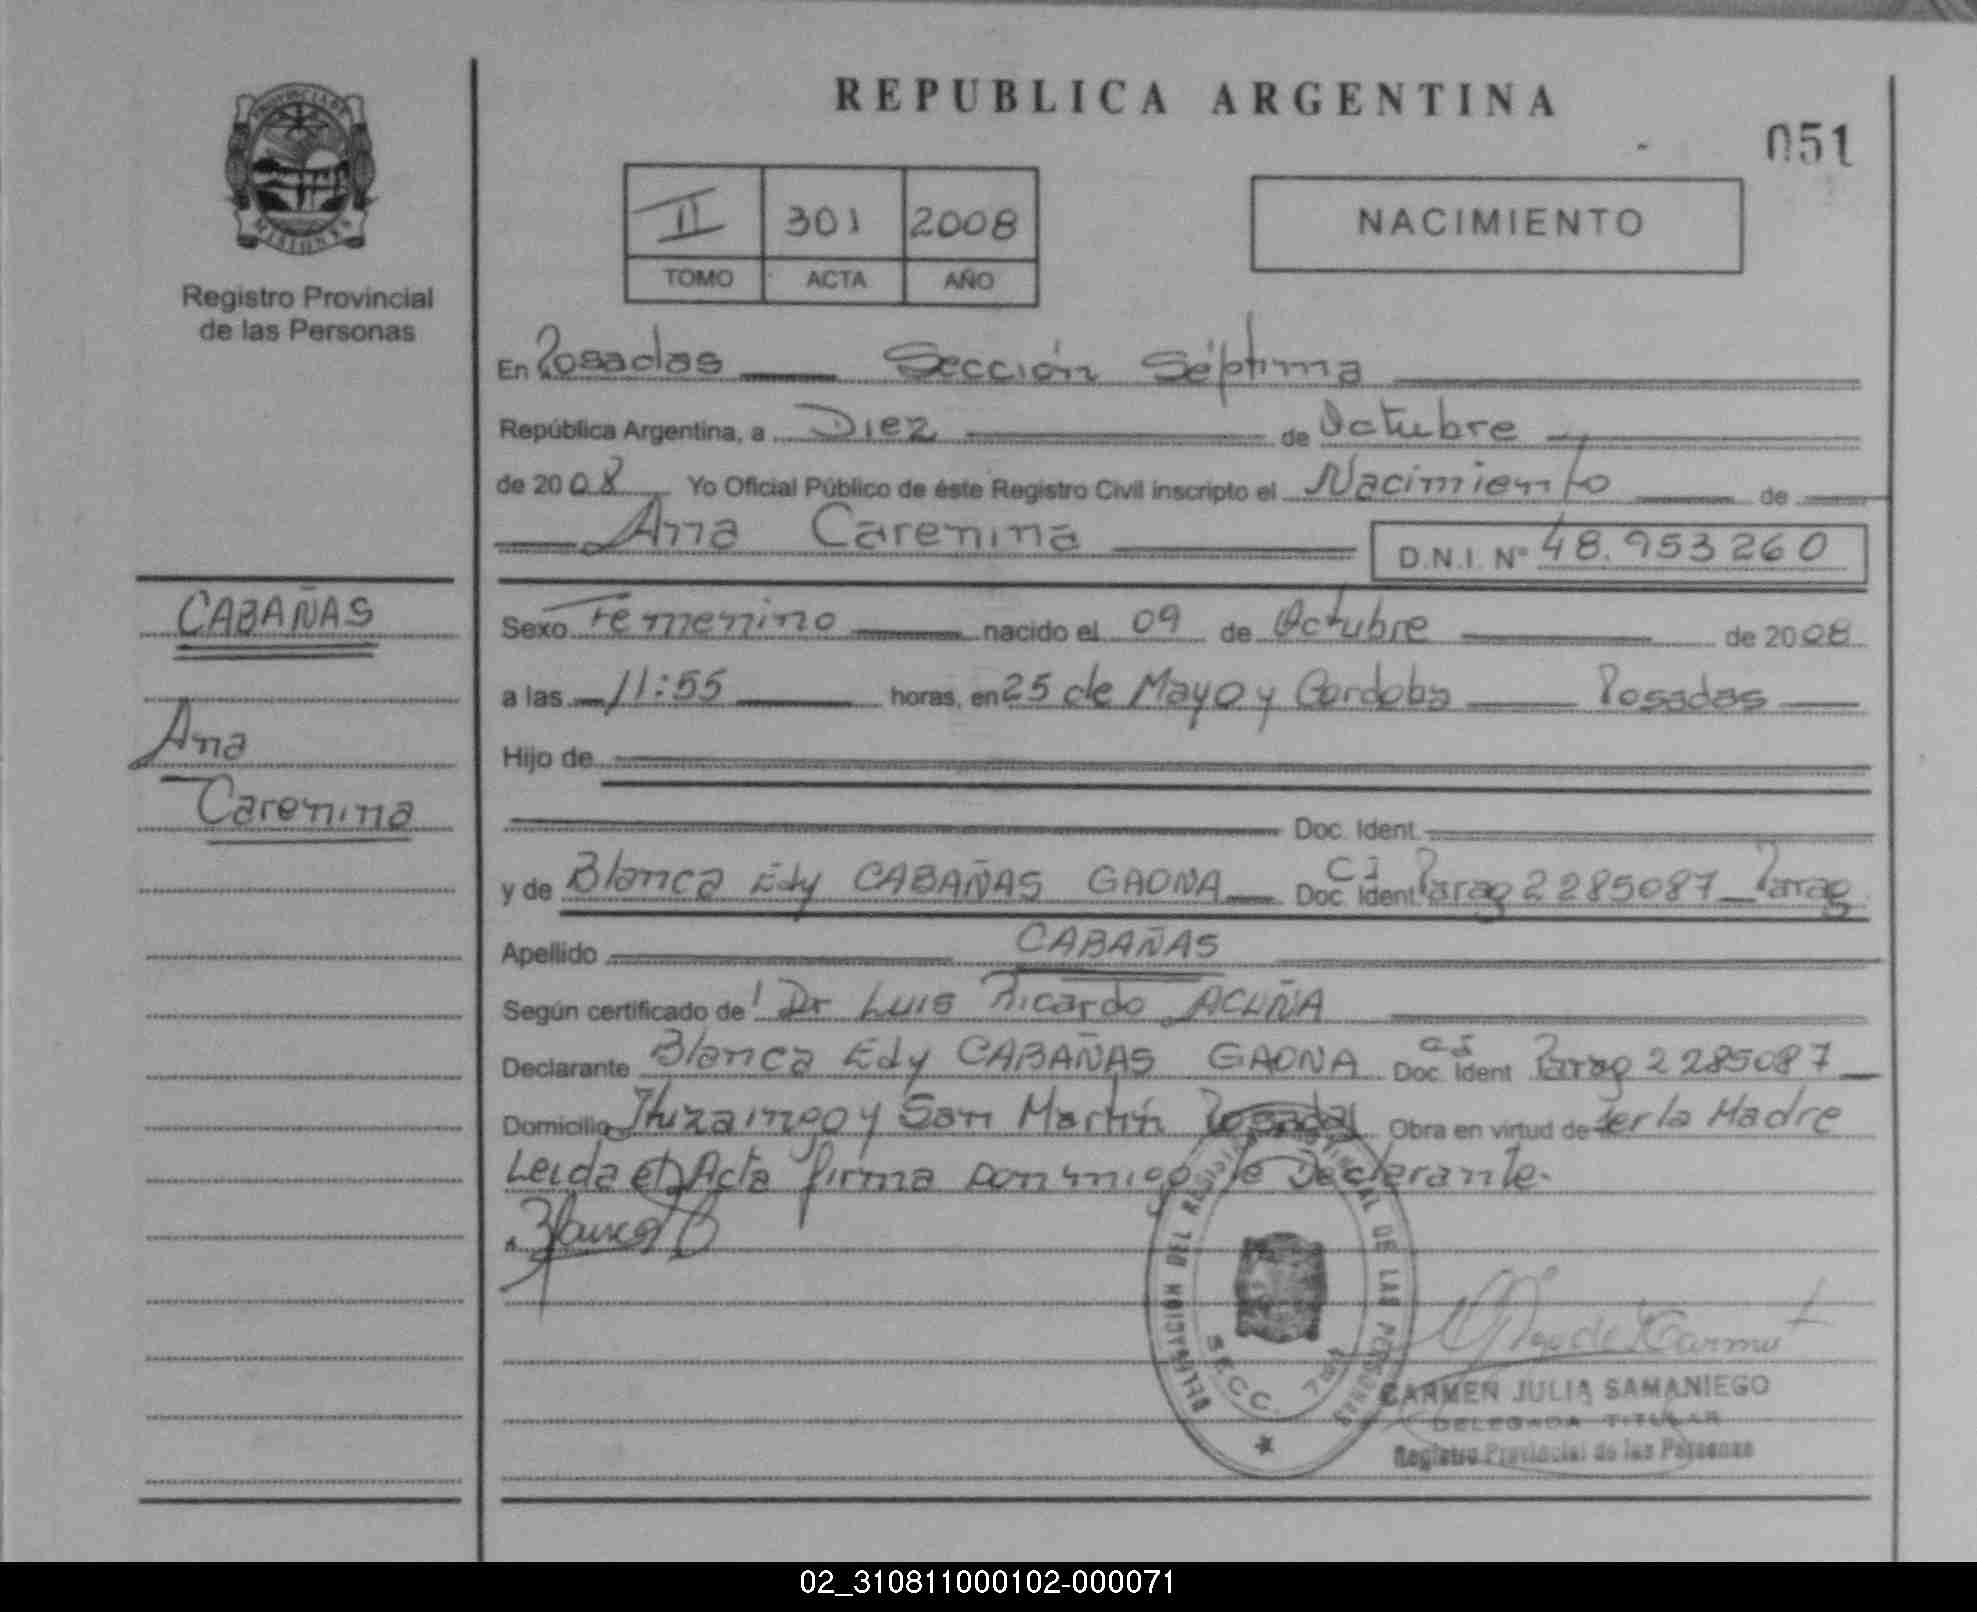 REPUBLICA ARGENTINA
051
PROVINCIA DE
MISIONES
Registro Provincial
de las Personas
II 301 2008
TOMO ACTA AÑO
NACIMIENTO
En Posadas Sección Séptima
República Argentina, a Diez de Octubre
de 2008 Yo Oficial Público de éste Registro Civil inscripto el Nacimiento de
Ana Carenina D.N.I. Nº 48.953260
CABAÑAS
Ana
Carenina
Sexo Femenino nacido el 09 de Octubre de 2008
a las 11:55 horas, en 25 de Mayo y Cordoba Posadas
Hijo de
Doc. Ident.
y de Blanca Edy CABAÑAS GAONA Doc. Ident. CI Parag 2285087 Parag
Apellido CABAÑAS
Según certificado de Dr Luis Ricardo ACUÑA
Declarante Blanca Edy CABAÑAS GAONA Doc. Ident CI Parag 2285087
Domicilio Ituzaingo y San Martín Posadas Obra en virtud de ser la Madre
Leida el Acta firma conmigo la Declarante.
Blanca
DELEGACION DEL REGISTRO PROVINCIAL DE LAS PERSONAS
SECC. 7ma
CARMEN JULIA SAMANIEGO
DELEGADA TITULAR
Registro Provincial de las Personas
02_310811000102-000071